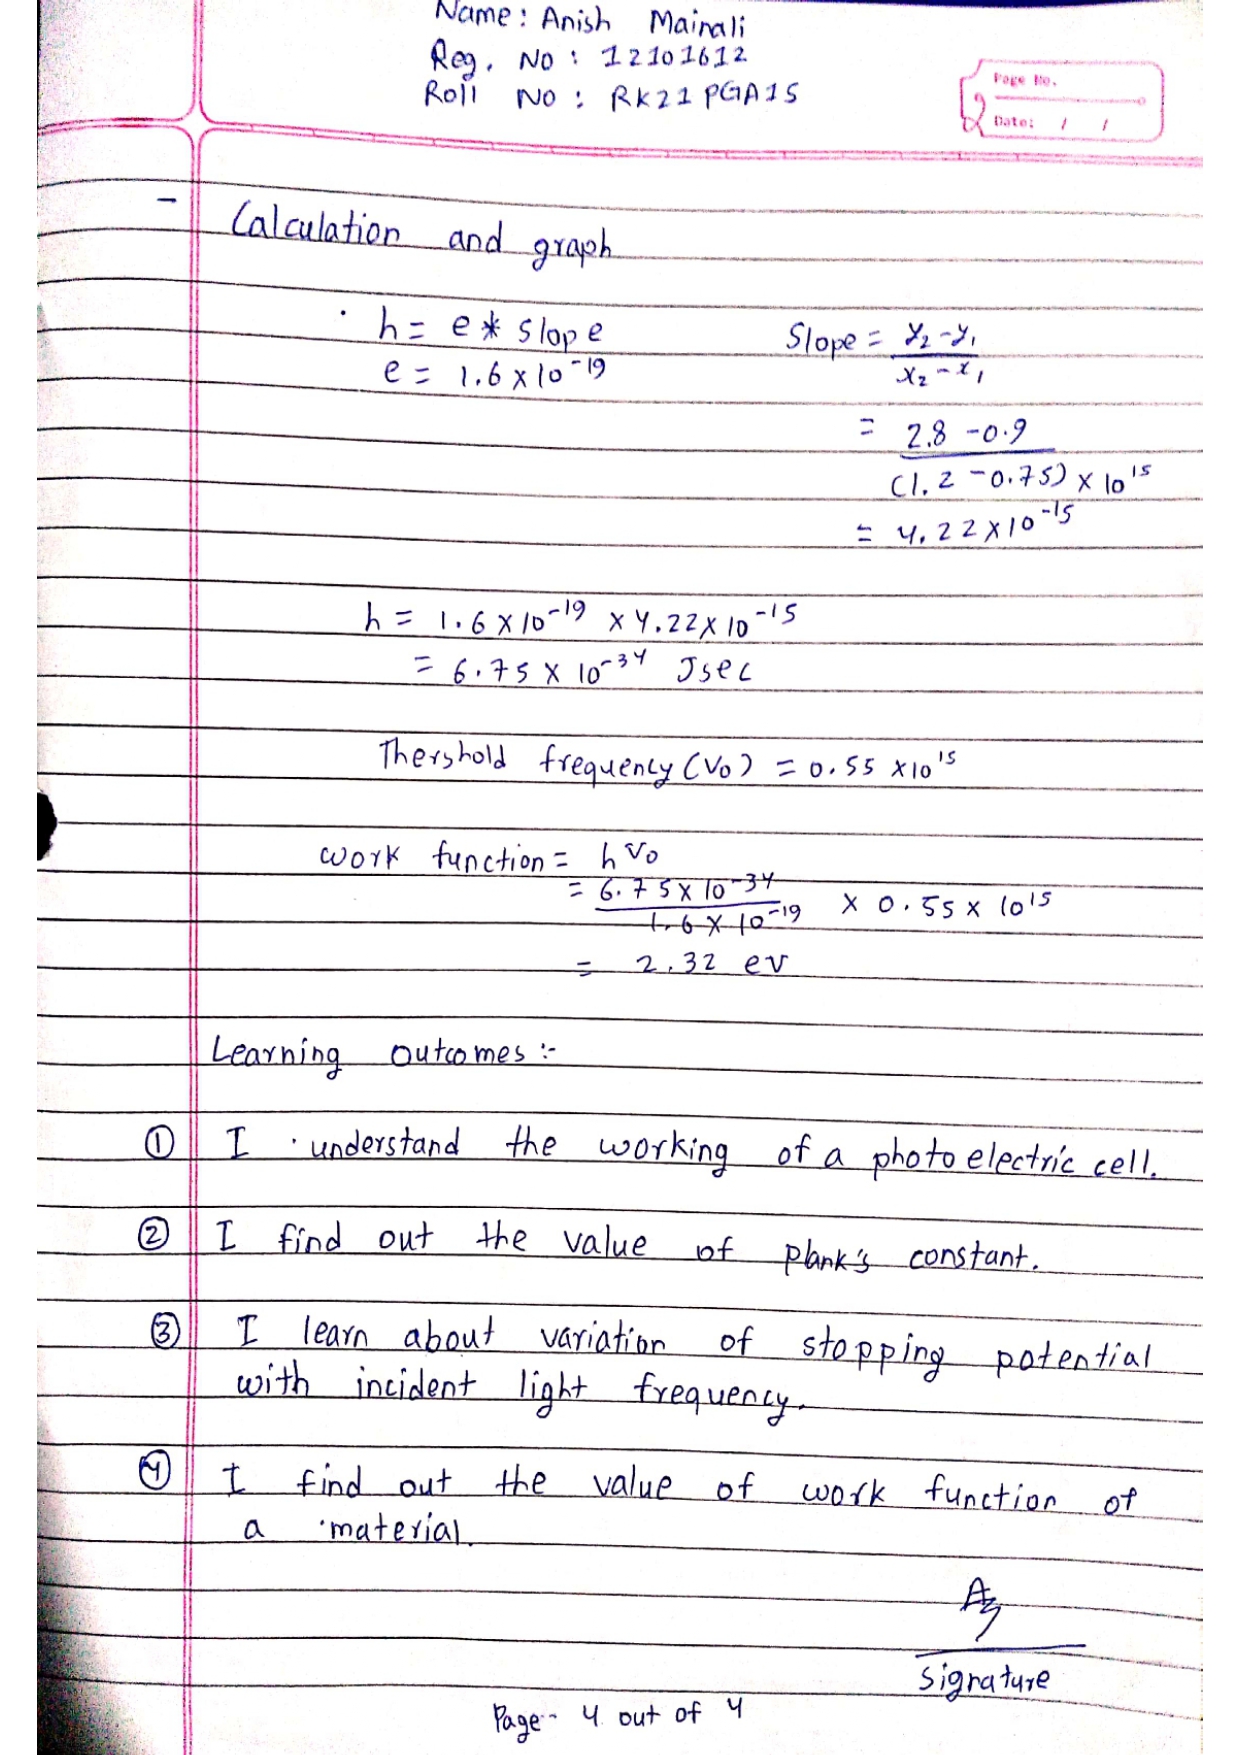 Name: Anish Mainali
Reg. No : 12101612
Roll No : RK21PGA15
Page No.
Date: / /
- Calculation and graph
h = e * slope
e = 1.6 x 10^-19
Slope = y2 - y1
x2 - x1
= 2.8 - 0.9
(1.2 - 0.75) x 10^15
= 4.22 x 10^-15
h = 1.6 x 10^-19 x 4.22 x 10^-15
= 6.75 x 10^-34 Jsec
Thershold frequency (V0) = 0.55 x 10^15
work function = h V0
= 6.75 x 10^-34
1.6 x 10^-19 x 0.55 x 10^15
= 2.32 ev
Learning outcomes :-
① I understand the working of a photo electric cell.
② I find out the value of plank's constant.
③ I learn about variation of stopping potential
with incident light frequency.
④ I find out the value of work function of
a material.
signature
Page - 4 out of 4